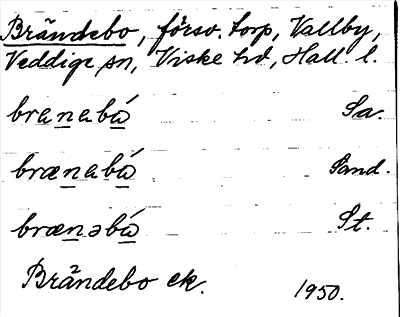 Brändebo, försv. torp, Vallby,
Veddige sn, Viske hd, Hall. l.
branabá Sa.
brænabá Sand.
brænəbá St.
Brändebo ek. 1950.